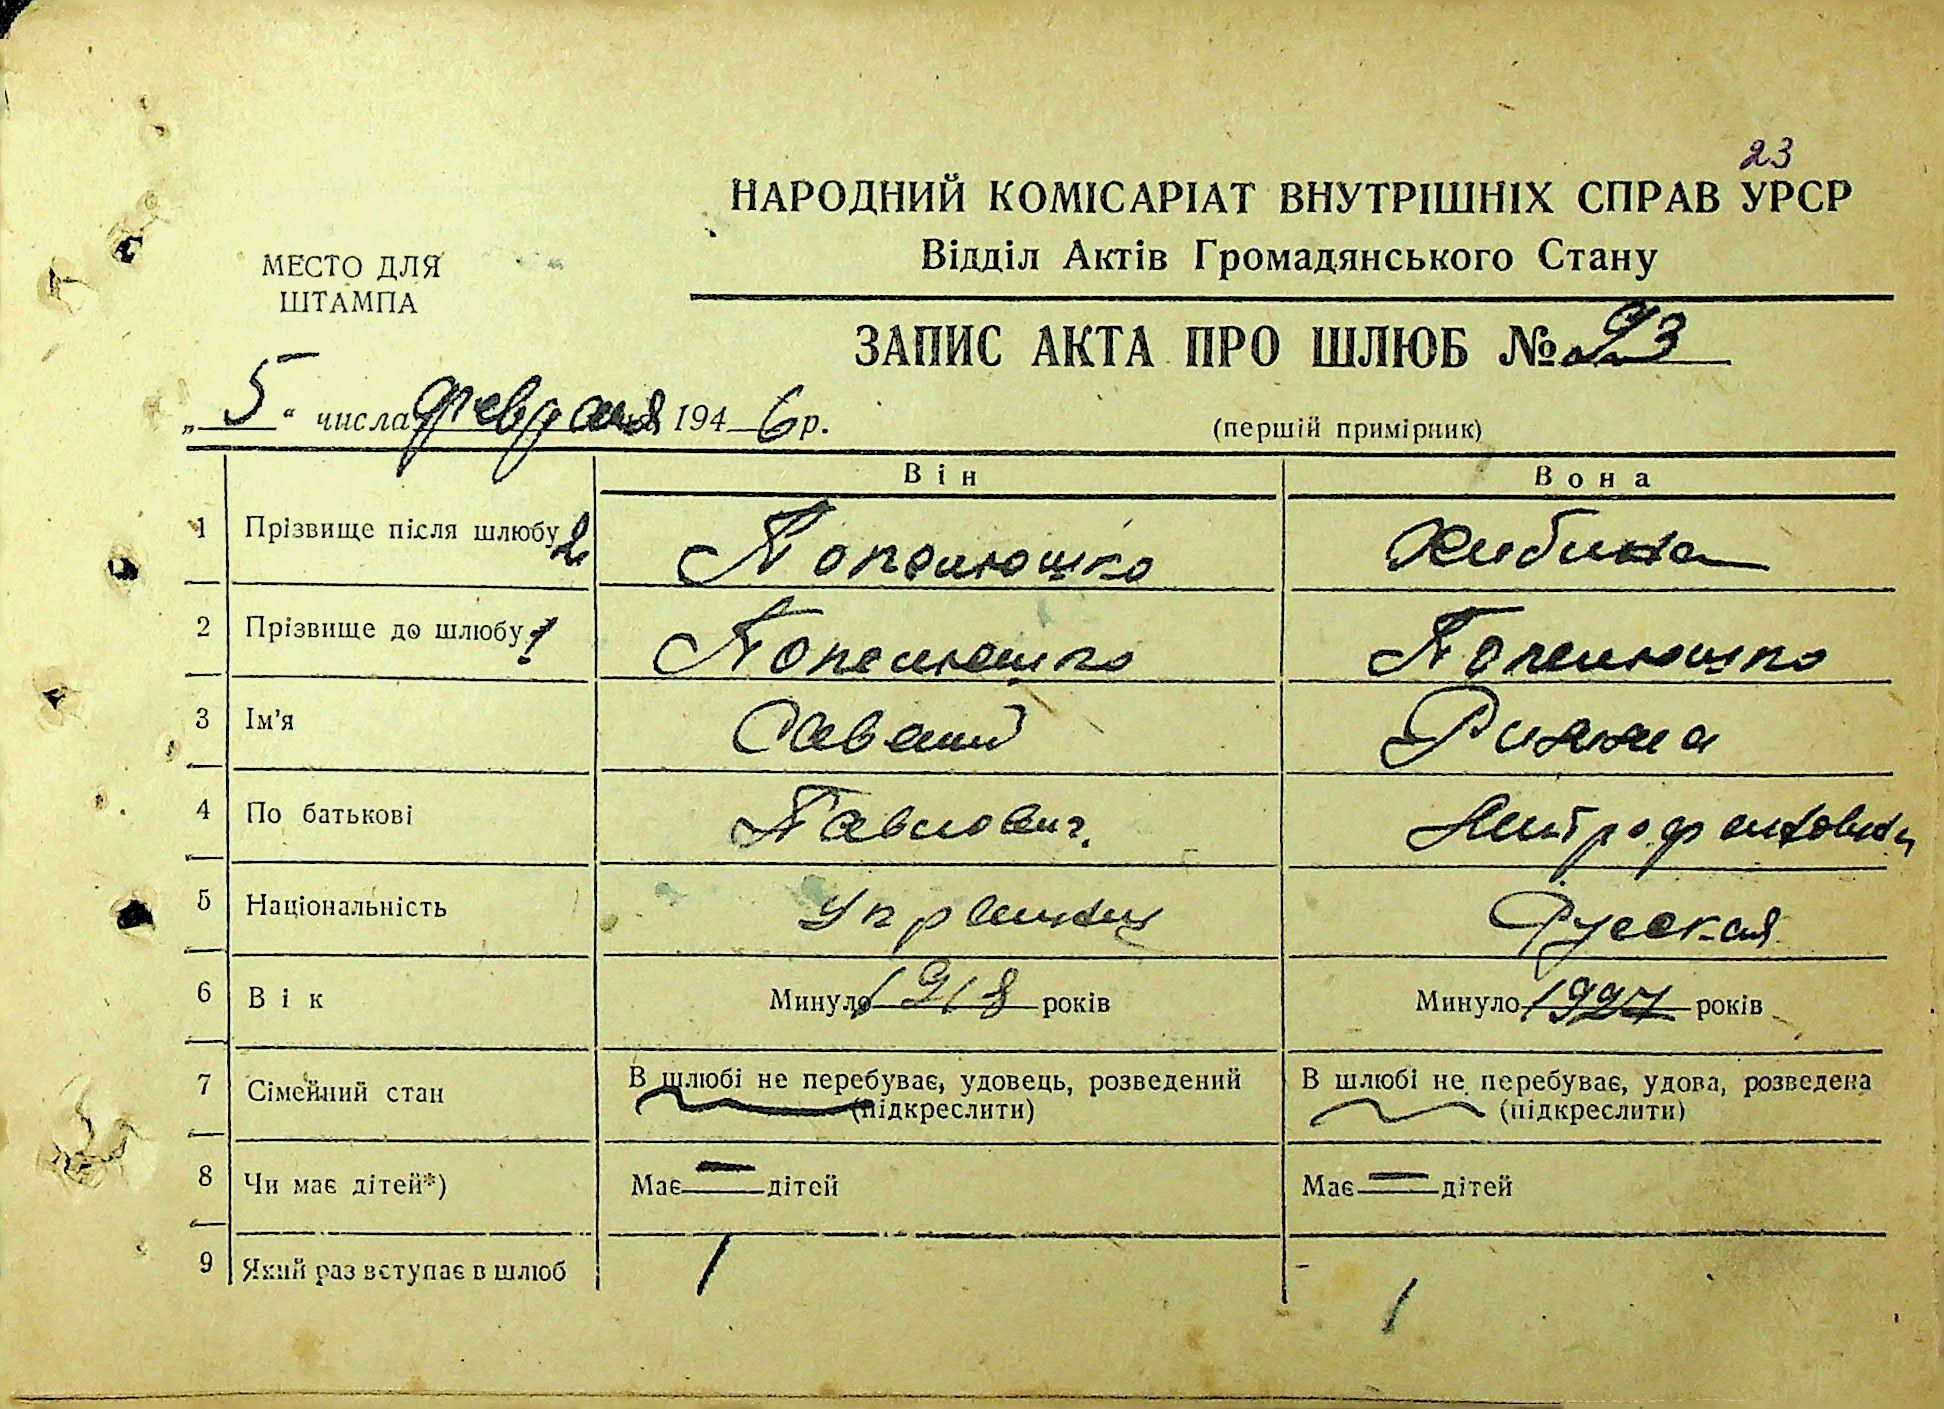 23
НАРОДНИЙ КОМІСАРІАТ ВНУТРІШНІХ СПРАВ УРСР
Відділ Актів Громадянського Стану
МЕСТО ДЛЯ
ШТАМПА
ЗАПИС АКТА ПРО ШЛЮБ № 23
„5“ числа февраля 1946 р.
(першій примірник)
Він Вона
1 Прізвище після шлюбу 2 Попелюшко Хибина
2 Прізвище до шлюбу 1 Попелюшко Попелюшко
3 Ім'я Савелий Римма
4 По батькові Павлович Митрофановна
5 Національність Украинец Русская
6 Вік Минуло 1918 років Минуло 1927 років
7 Сімейний стан В шлюбі не перебуває, удовець, розведений (підкреслити) В шлюбі не перебуває, удова, розведена (підкреслити)
8 Чи має дітей*) Має — дітей Має — дітей
9 Який раз вступає в шлюб 1 1